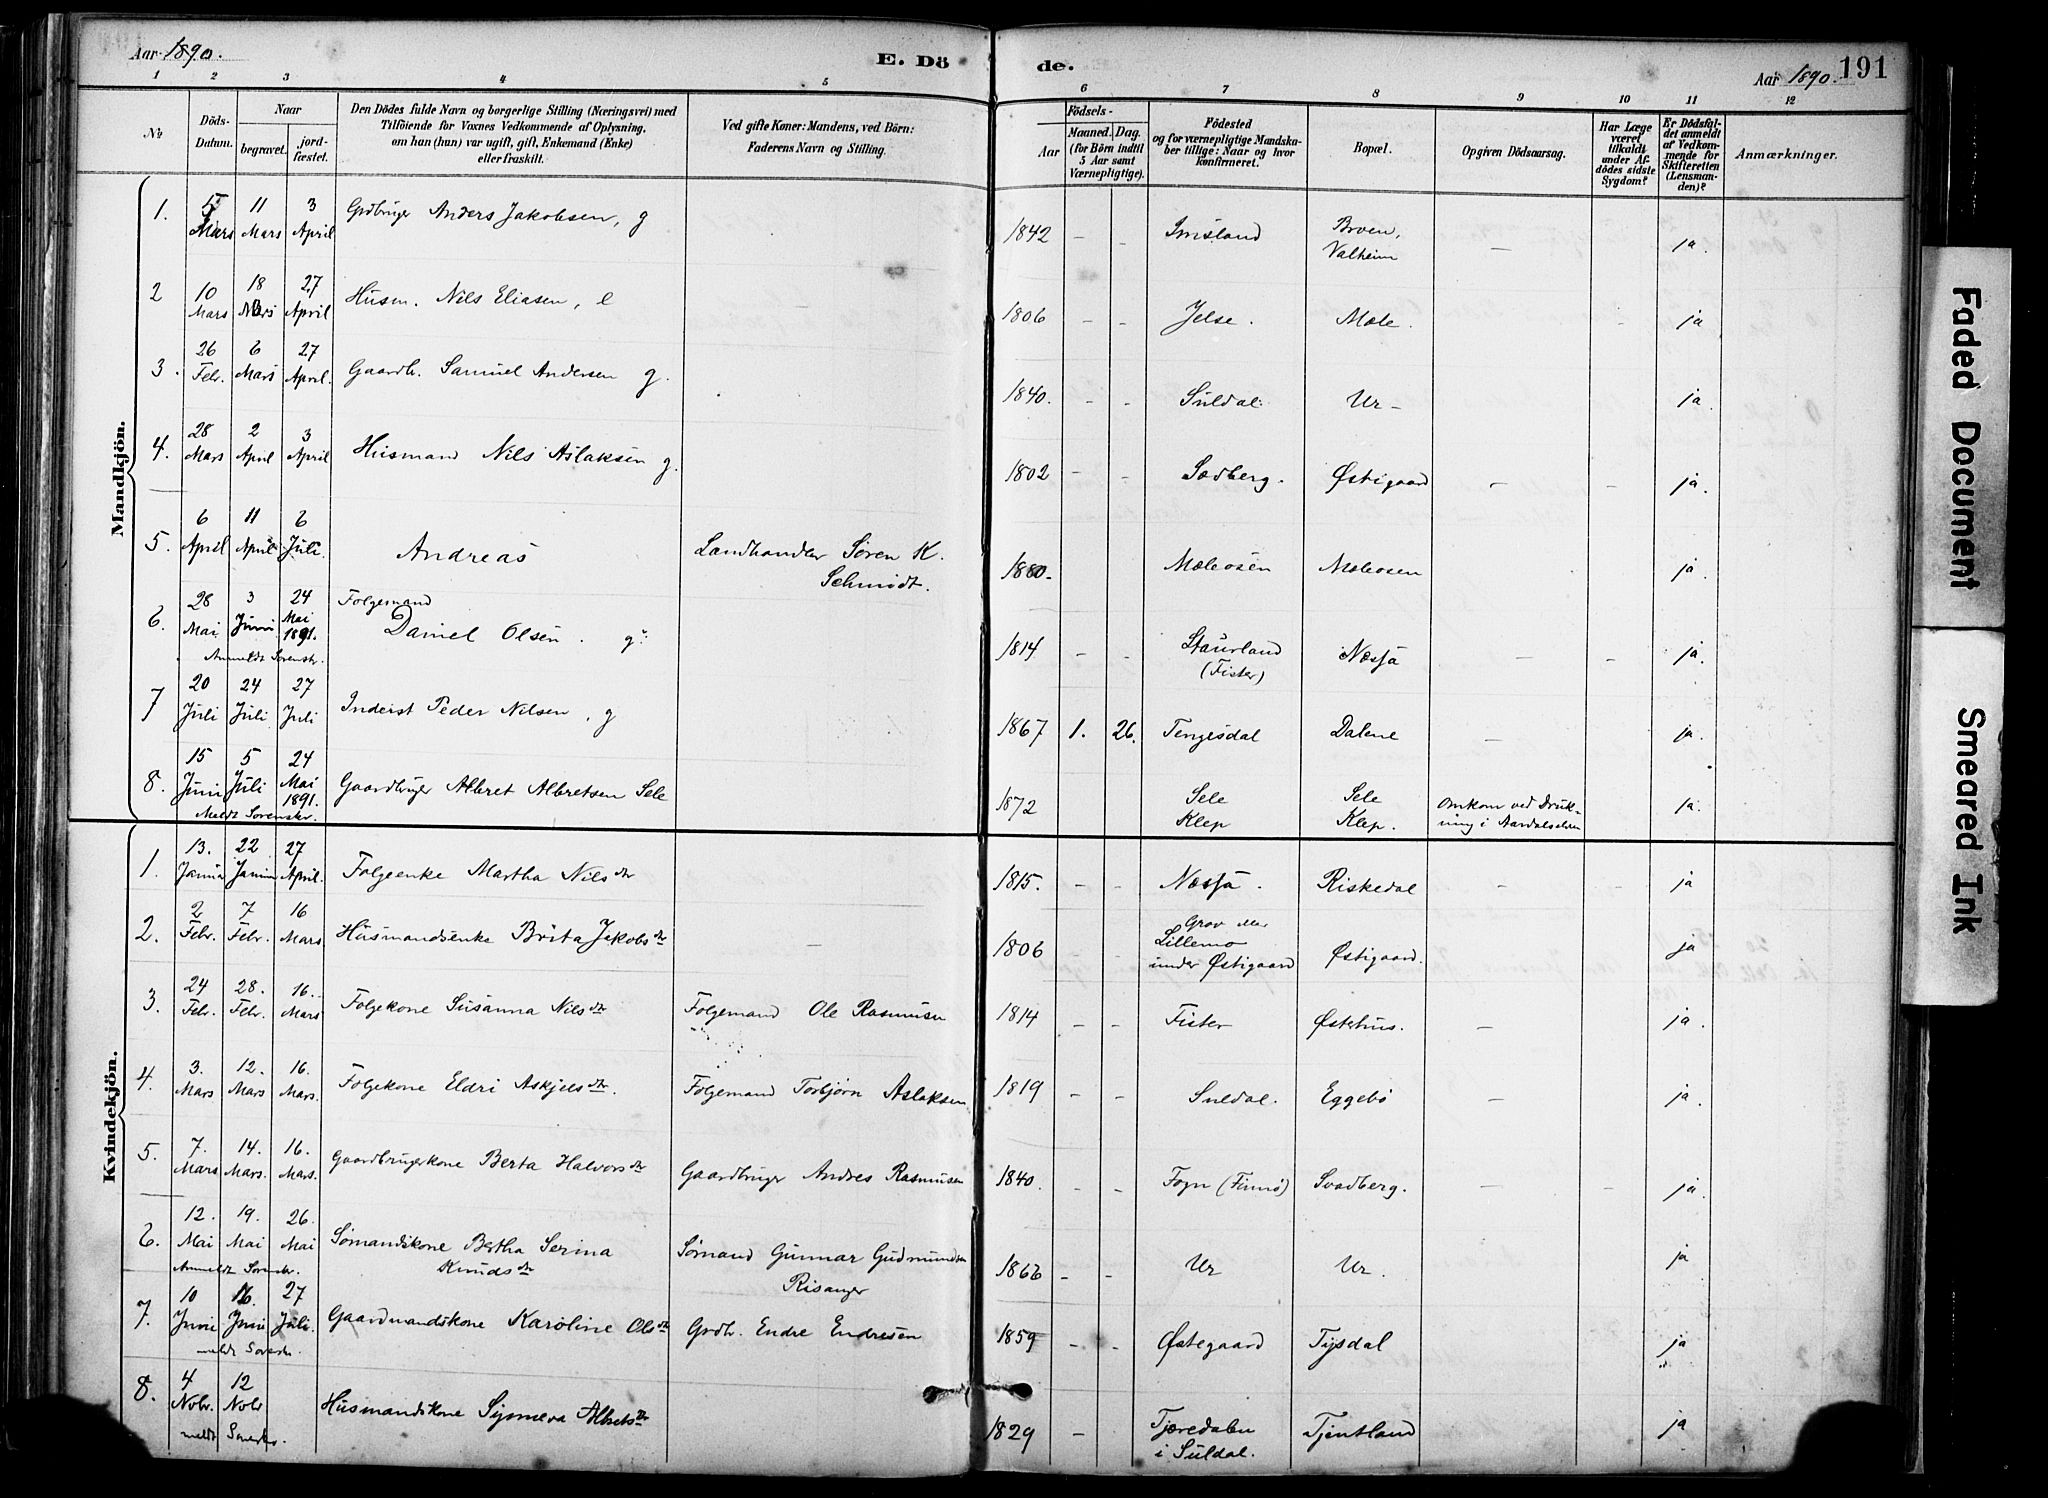 Aar 1890.
E. Dö
de.
Aar 1890.
191
1 2 3 4 5 6 7 8 9 10 11 12
No
Döds-Datum.
Naar
begravet.
jord-fæstet.
Den Dödes fulde Navn og borgerlige Stilling (Næringsvei) med
Tilföiende for Voxnes Vedkommende af Oplysning,
om han (hun) var ugift, gift, Enkemand (Enke)
eller fraskilt.
Ved gifte Koner: Mandens, ved Börn:
Faderens Navn og Stilling.
Födsels-
Aar
Maaned. Dag.
(for Börn indtil
5 Aar samt
Værnepligtige).
Födested
og for værnepligtige Mandska-
ber tillige: Naar og hvor
konfirmeret.
Bopæl.
Opgiven Dödsaarsag.
Har Læge
været
tilkaldt
under Af-
dödes sidste
Sygdom?
Er Dödsfal-
det anmeldt
af Vedkom-
mende for
Skifteretten
(Lensman-
den)?
Anmærkninger.
Mandkjön.
1. 5 Mars 11 Mars 3 April Grdbruger Anders Jakobsen, g 1842 - - Imsland Broen, Valheim - ja.
2 10 Mars 18 Mars 27 April Husm. Nils Eliasen, e - 1806 - - Jelse. Mæle. - ja
3. 26 Febr. 6 Mars 27 April. Gaardb. Samuel Andersen g. 1840. - - Suldal. Ur - ja.
4. 28 Mars 2 April 3 April Husmand Nils Aslaksen g. 1802 - - Sodberg. Østigaard - - ja.
5. 6 April 11 April 6 Juli. Andreas Landhandler Sören K. Schmidt. 1880. Mæleosen Mæleosen ja.
6. 28 Mai 3 Juni 24 Mai 1891. Folgemand Daniel Olsen. g. 1814 - - Staurland (Fister) Næssa - - ja.
Anmeldt Sorenskr.
7 20 Juli 24 Juli 27 Juli Inderst Peder Nilsen, g 1867 1. 26. Tengesdal Dalene - ja.
8. 15 Juni 5 Juli 24 Mai 1891. Gaardbruger Albret Albretsen Sele 1872 Sele Klep Sele Klep. Omkom ved Druk-
ning i Aardalselven ja.
Meldt Sorenskr.
Kvindekjön.
1. 13. Januar 22 Januar 27 April. Folgeenke Martha Nilsdtr 1815. - - Næssa. Riskedal - - ja
2. 2 Febr. 7 Febr. 16 Mars Husmandsenke Brita Jakobsdtr - 1806 - - Grov eller Lillemo under Østigaard Østigaard. ja
3. 24 Febr. 28. Febr. 16. Mars Folgekone Susanna Nilsdtr Folgemand Ole Rasmusen 1814 - - Fister Østerhus. - ja.
4. 3. Mars 12. Mars 16. Mars. Folgekone Eldri Askjelsdtr. Folgemand Torbjørn Aslaksen 1819 - - Suldal. Eggebø - ja.
5. 7. Mars 14. Mars. 16. Mars. Gaardbrugerkone Berta Halvorsdtr Gaardbruger Andres Rasmusen 1840. - - Fogn (Finnø) Svadberg. - - ja.
6. 12. Mai 19. Mai 26. Mai Sømandskone Bertha Serina Knudsdtr Sømand Gunnar Gudmundsen Risanger 1866 - - Ur Ur. ja
Anmeldt Sorenskr.
7. 10 Juni 16. Juni 27 Juli. Gaardmandskone Karoline Olsdtr Grdbr. Endre Endresen 1859 - - Østegaard Tysdal ja
meldt Sorenskr.
8. 4 Nobr. 12 Nobr Husmandskone Synneva Albretsdtr 1829 - Tjæredalen i Suldal. Tjentland ja
meldt Sorenskr.
Faded Document
Smeared Ink